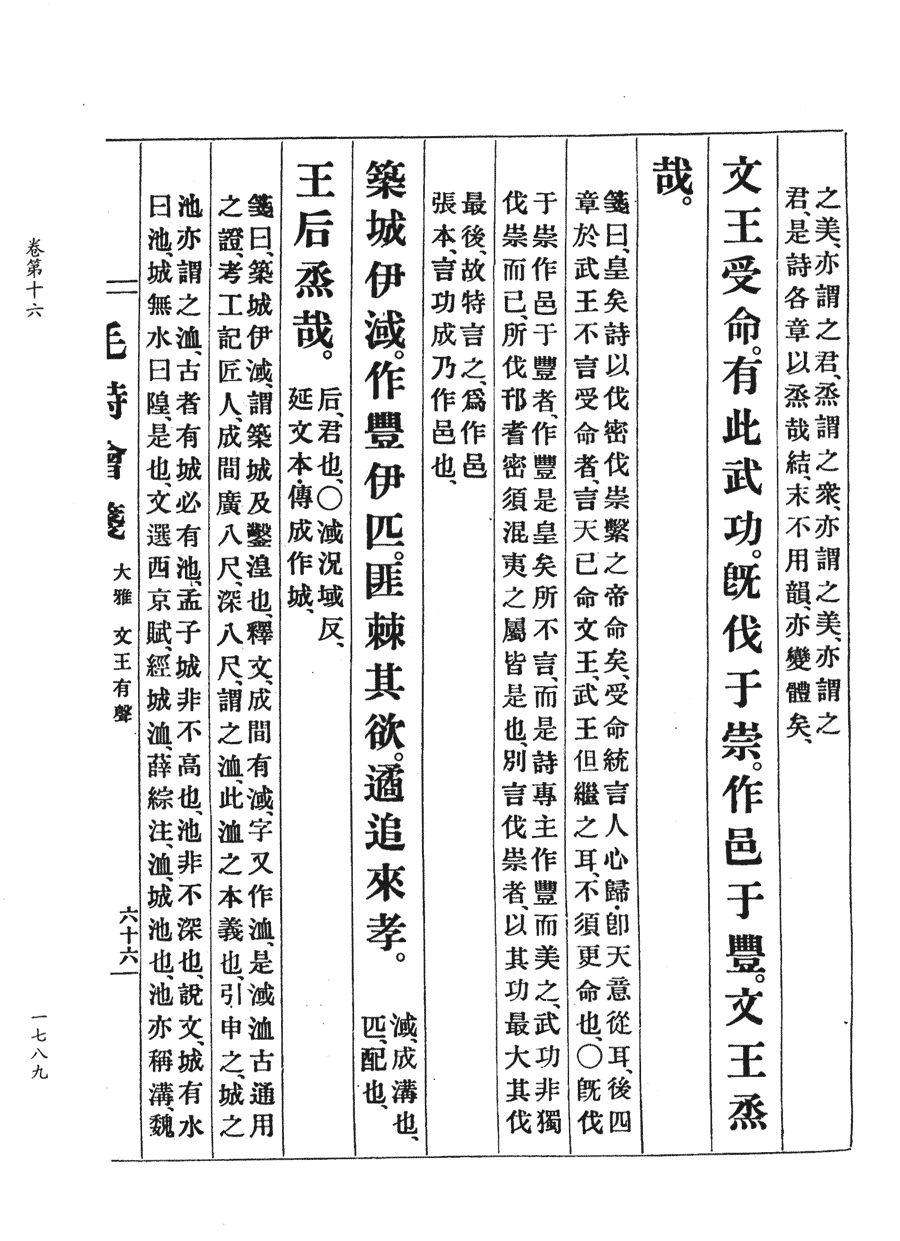 之美、亦謂之君、烝謂之衆、亦謂之美、亦謂之
君、是詩各章以烝哉結、末不用韻、亦變體矣、
文王受命。有此武功。旣伐于崇。作邑于豐。文王烝
哉。
箋曰、皇矣詩以伐密伐崇繫之帝命矣、受命統言人心歸、卽天意從耳、後四
章於武王不言受命者、言天已命文王、武王但繼之耳、不須更命也、〇旣伐
于崇作邑于豐者、作豐是皇矣所不言、而是詩專主作豐而美之、武功非獨
伐崇而已、所伐邗耆密須混夷之屬皆是也、別言伐崇者、以其功最大其伐
最後、故特言之、爲作邑
張本、言功成乃作邑也、
築城伊淢。作豐伊匹。匪棘其欲。遹追來孝。
淢、成溝也、
匹、配也、
王后烝哉。
后、君也、〇淢況域反、
延文本、傳成作城、
箋曰、築城伊淢、謂築城及鑿湟也、釋文、成間有淢、字又作洫、是淢洫古通用
之證、考工記匠人、成間廣八尺、深八尺、謂之洫、此洫之本義也、引申之、城之
池亦謂之洫、古者有城必有池、孟子城非不高也、池非不深也、說文、城有水
曰池、城無水曰隍、是也、文選西京賦、經城洫、薛綜注、洫、城池也、池亦稱溝、魏
毛詩會箋 大雅 文王有聲 六十六
卷第十六
一七八九